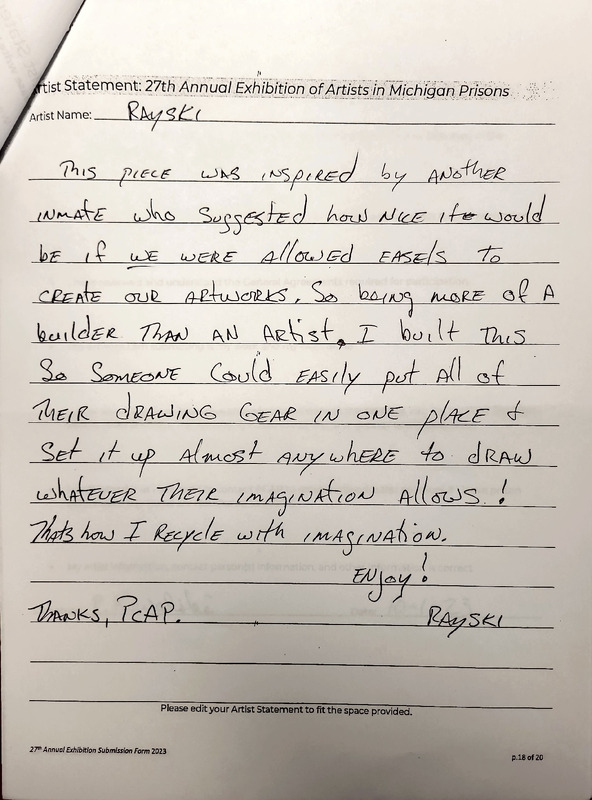 Artist Statement: 27th Annual Exhibition of Artists in Michigan Prisons
Artist Name: RAYSKI
This piece was inspired by another
inmate who suggested how nice it would
be if we were allowed easels to
create our artworks. So being more of a
builder than an artist, I built this
so someone could easily put all of
their drawing gear in one place &
set it up almost anywhere to draw
whatever their imagination allows!
Thats how I recycle with imagination.
Enjoy!
Thanks, PCAP. RAYSKI
Please edit your Artist Statement to fit the space provided.
27th Annual Exhibition Submission Form 2023 p.18 of 20